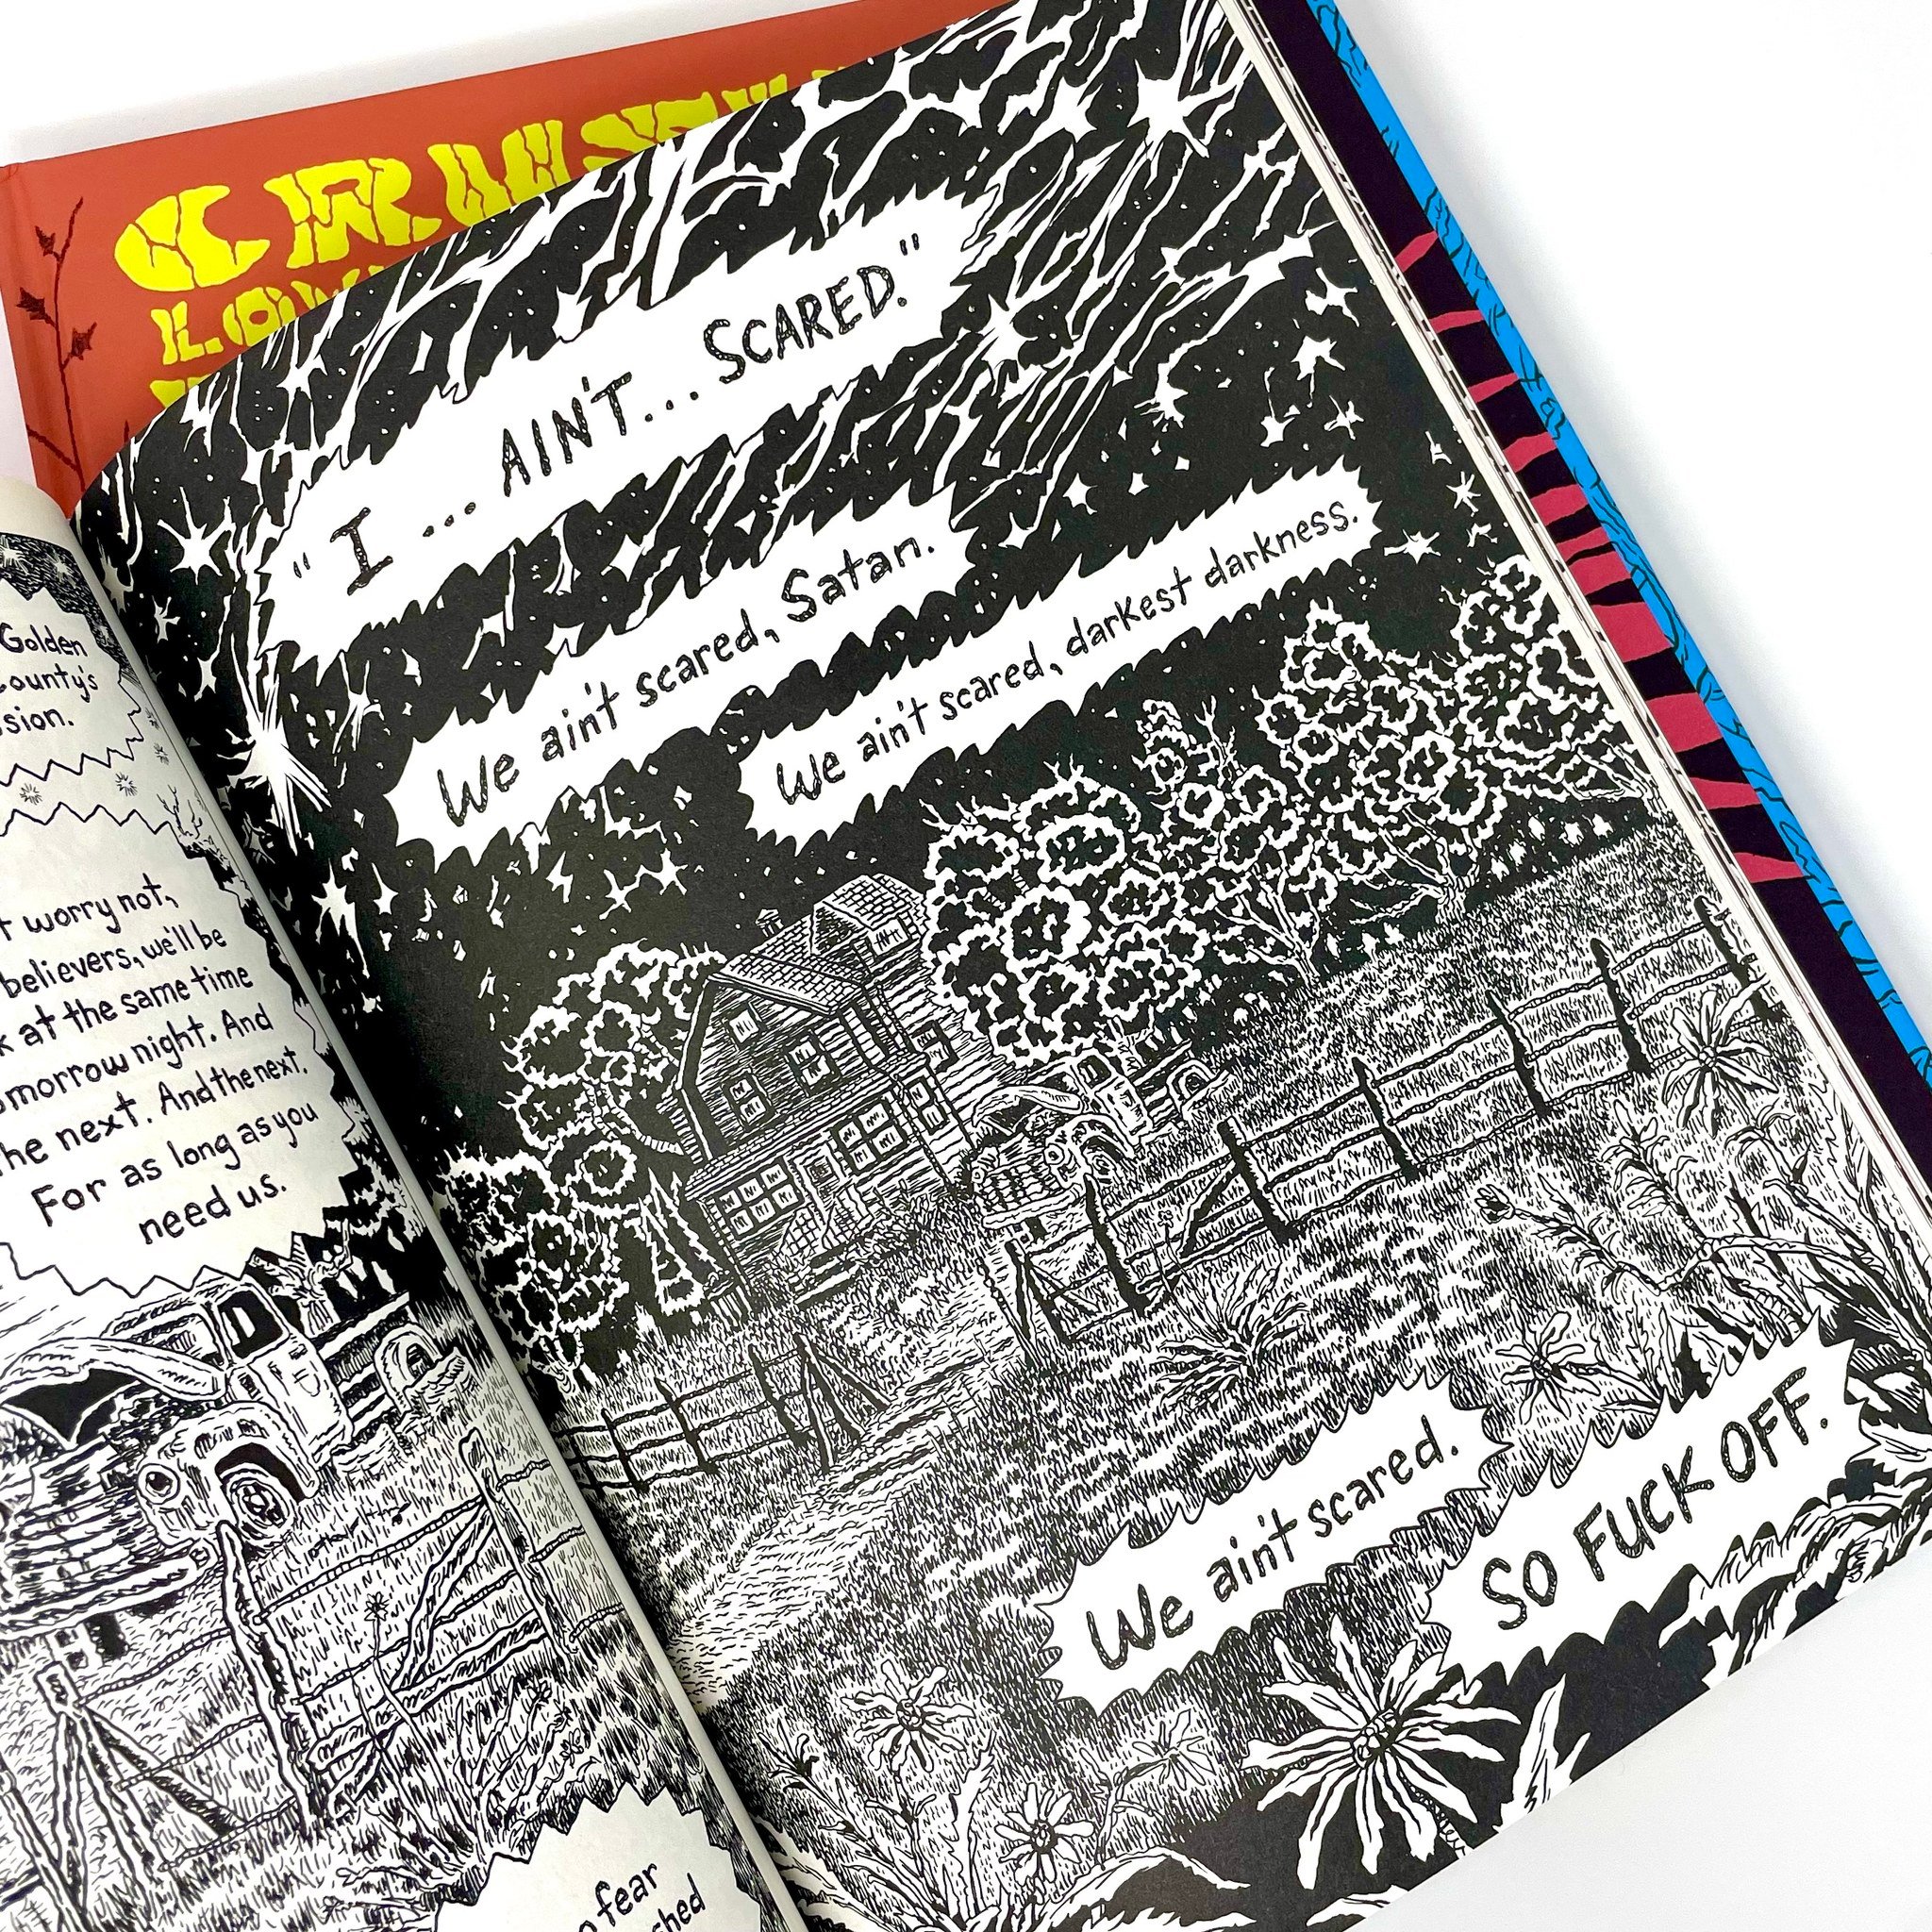 CRUS
LOV
Golden
County's
sion.
worry not,
believers, we'll be
at the same time
morrow night. And
he next. And the next.
For as long as you
need us.
fear
shed
"I ... AIN'T... SCARED."
We ain't scared, Satan.
We ain't scared, darkest darkness.
We ain't scared.
SO FUCK OFF.